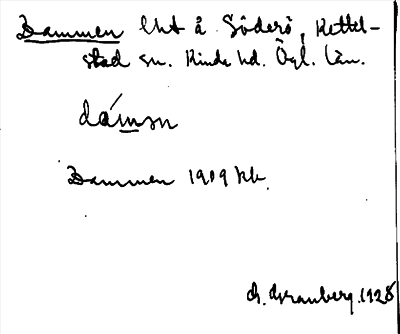 Dammen lht å Söderö, Kettel-
stad sn. Kinda hd. Ögl. län.
dámən
Dammen 1909 kb.
G. Granberg. 1928